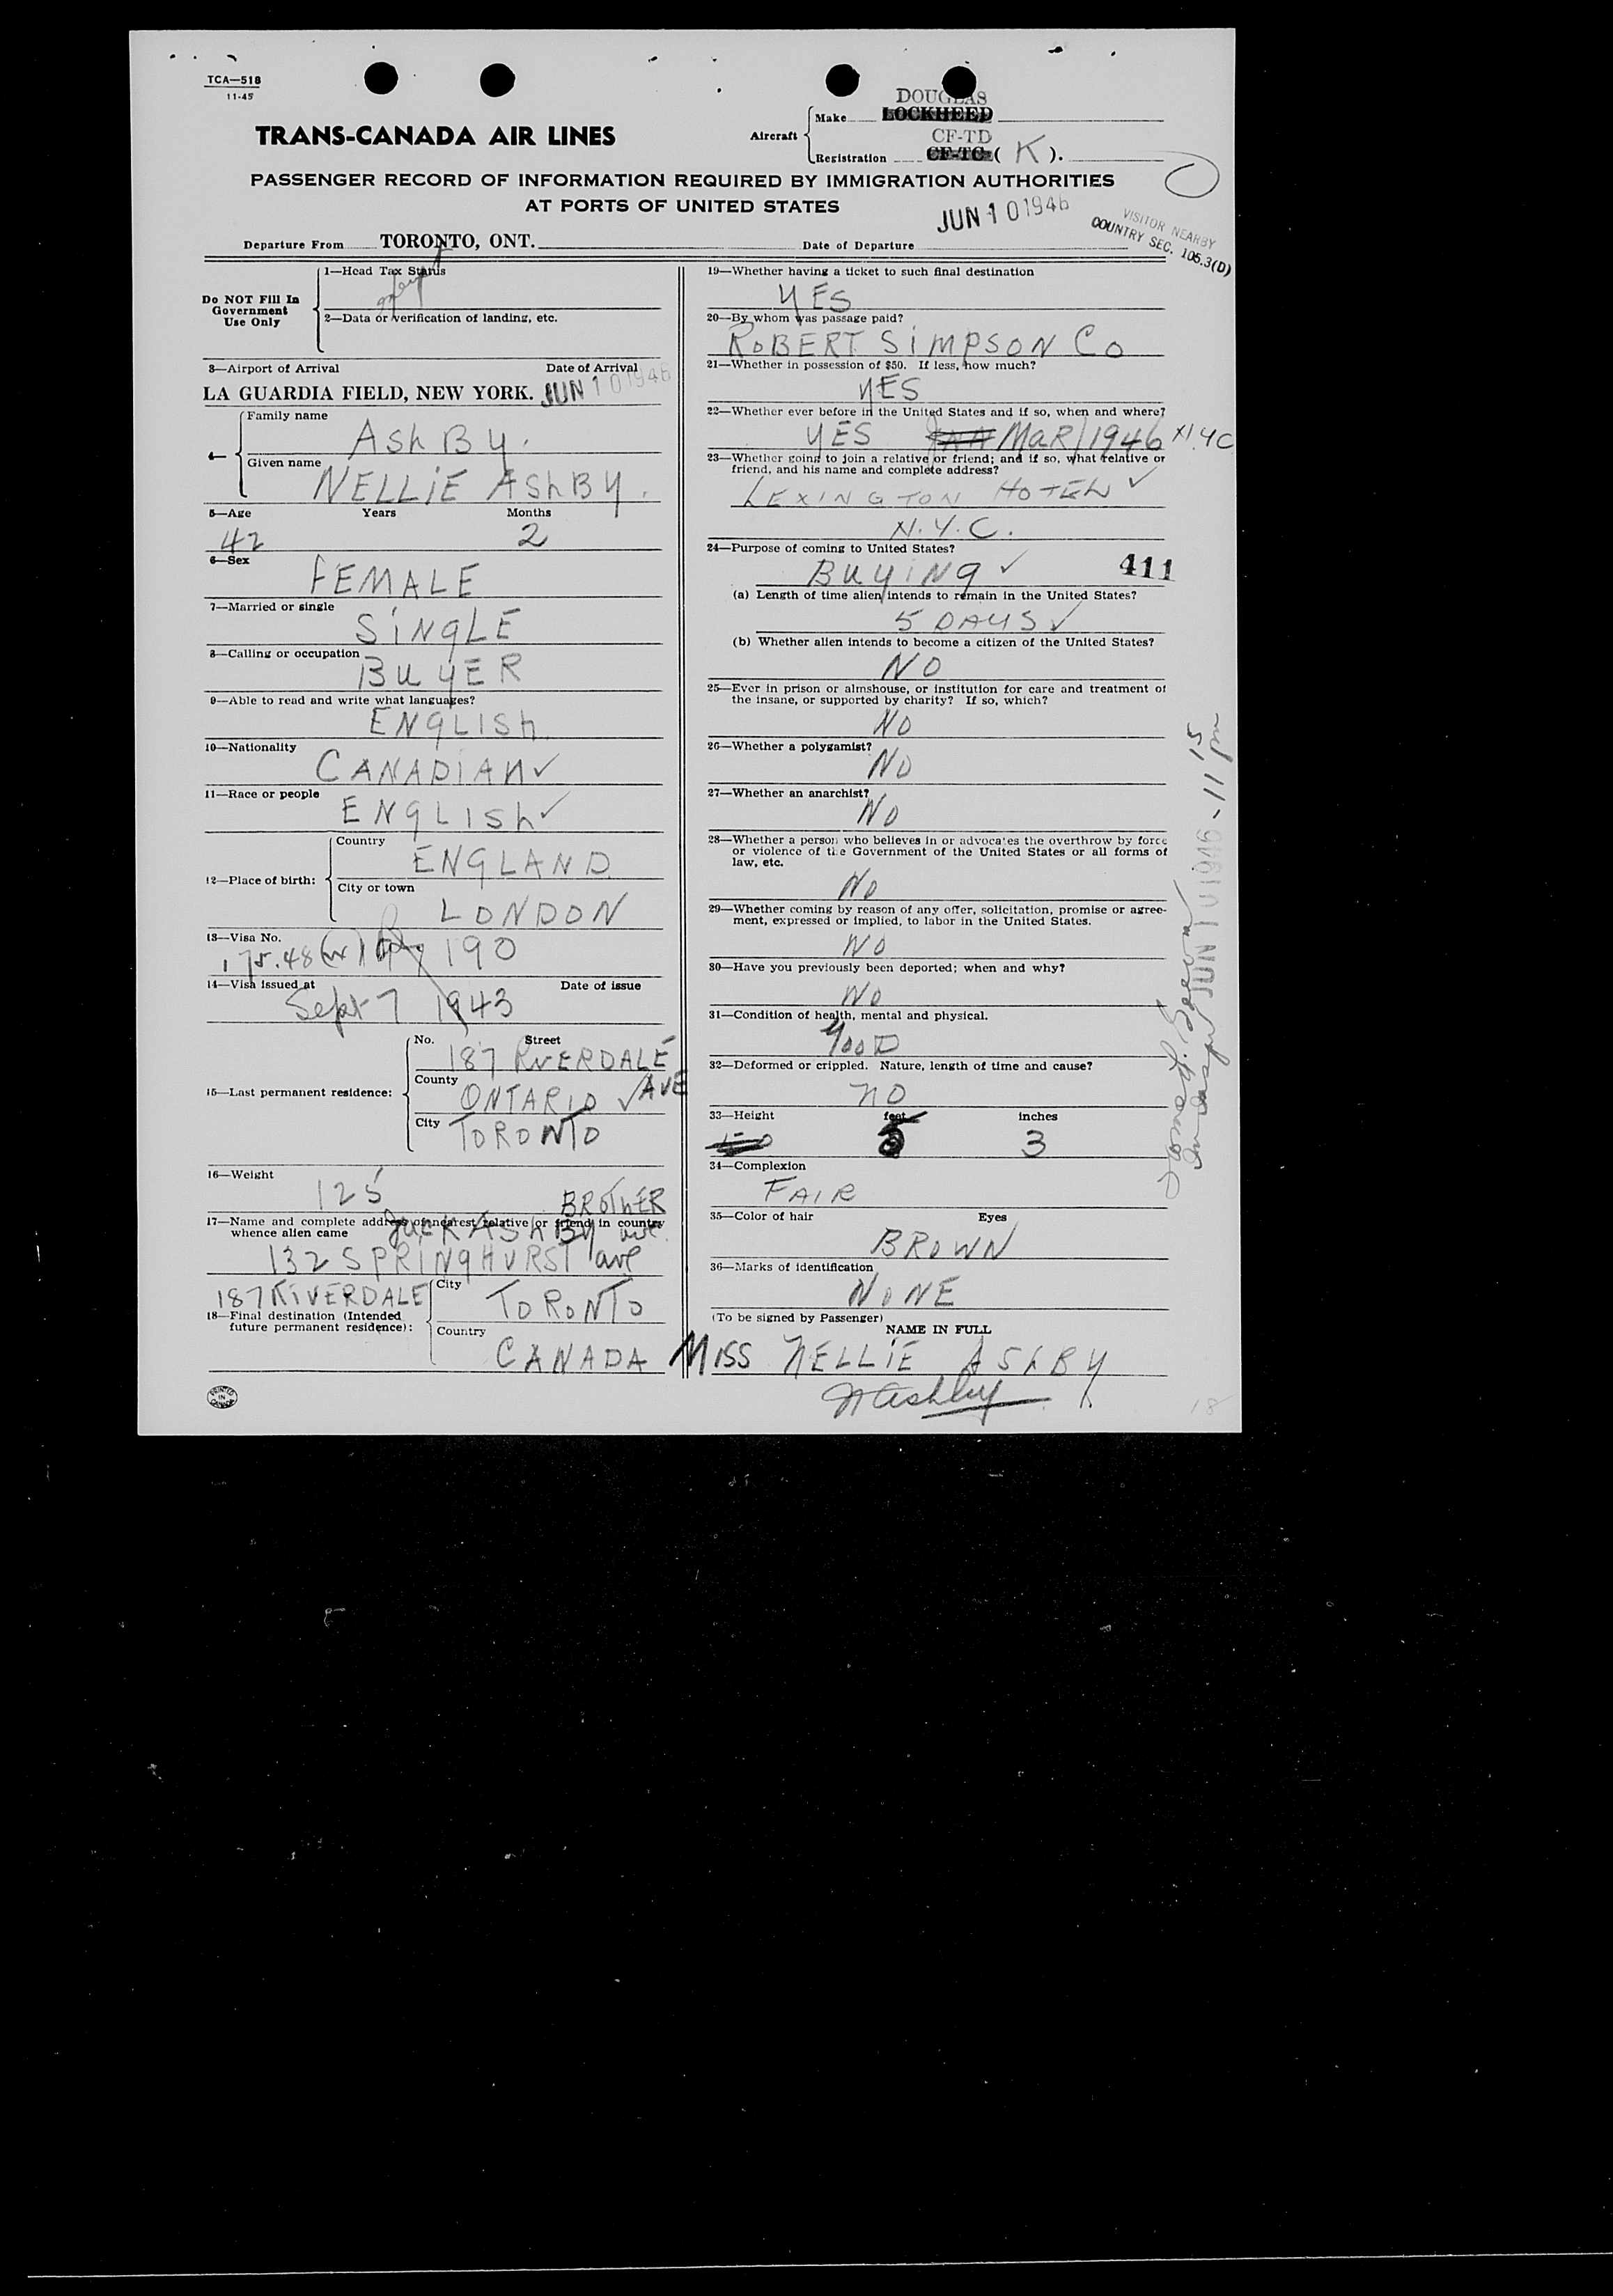 TCA—518
11-45
TRANS-CANADA AIR LINES
Aircraft
Make
DOUGLAS
LOCKHEED
Registration
CF-TD
CF-TC- ( K ).
PASSENGER RECORD OF INFORMATION REQUIRED BY IMMIGRATION AUTHORITIES
AT PORTS OF UNITED STATES
JUN 10 1946
VISITOR NEARBY
COUNTRY SEC. 105.3(D)
Departure From TORONTO, ONT.
Date of Departure
Do NOT Fill In
Government
Use Only
1—Head Tax Status
2—Data or verification of landing, etc.
3—Airport of Arrival Date of Arrival
LA GUARDIA FIELD, NEW YORK. JUN 10 1946
4—
Family name
AShBy.
Given name
NELLiE AShBy.
5—Age Years Months
42 2
6—Sex
FEMALE
7—Married or single
SiNgLE
8—Calling or occupation
BuyER
9—Able to read and write what languages?
ENgLISh
10—Nationality
CANADiAN ✓
11—Race or people
ENgLISh ✓
12—Place of birth:
Country
ENgLAND
City or town
LONDON
13—Visa No.
175.48 190
14—Visa issued at Date of issue
Sept 7 1943
15—Last permanent residence:
No. Street
187 RIVERDALE
AVE
County
ONTARIO ✓
City
TORONTO
16—Weight
125
BROThER
17—Name and complete address of nearest relative or friend in country
whence alien came
JACK AShBy
132 SPRINgHURST ave
187 RiVERDALE ave
18—Final destination (Intended
future permanent residence):
City
TORONTO
Country
CANADA
PRINTED
IN
CANADA
19—Whether having a ticket to such final destination
YES
20—By whom was passage paid?
ROBERT SiMPSON Co
21—Whether in possession of $50. If less, how much?
yES
22—Whether ever before in the United States and if so, when and where?
YES MaR/1946 N.Y.C
23—Whether going to join a relative or friend; and if so, what relative or
friend, and his name and complete address?
LEXINGTON HOTEL ✓
N.Y.C.
24—Purpose of coming to United States?
BuyiNg ✓
411
(a) Length of time alien intends to remain in the United States?
5 DAYS ✓
(b) Whether alien intends to become a citizen of the United States?
NO
25—Ever in prison or almshouse, or institution for care and treatment of
the insane, or supported by charity? If so, which?
NO
26—Whether a polygamist?
NO
27—Whether an anarchist?
NO
28—Whether a person who believes in or advocates the overthrow by force
or violence of the Government of the United States or all forms of
law, etc.
NO
29—Whether coming by reason of any offer, solicitation, promise or agree-
ment, expressed or implied, to labor in the United States.
NO
30—Have you previously been deported; when and why?
NO
31—Condition of health, mental and physical.
gooD
32—Deformed or crippled. Nature, length of time and cause?
NO
33—Height feet inches
5 3
34—Complexion
FAIR
35—Color of hair Eyes
BROWN
36—Marks of identification
NONE
(To be signed by Passenger)
NAME IN FULL
MISS NELLiE AShBY
N Ashby
18
JUN 10 1946 - 11 15 pm